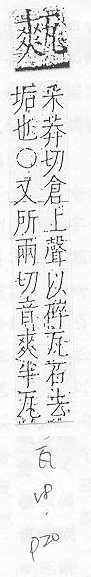 㼽
采莽切倉上聲以碎瓦石去
垢也○又所兩切音爽半瓦
瓦
v8
.
p20